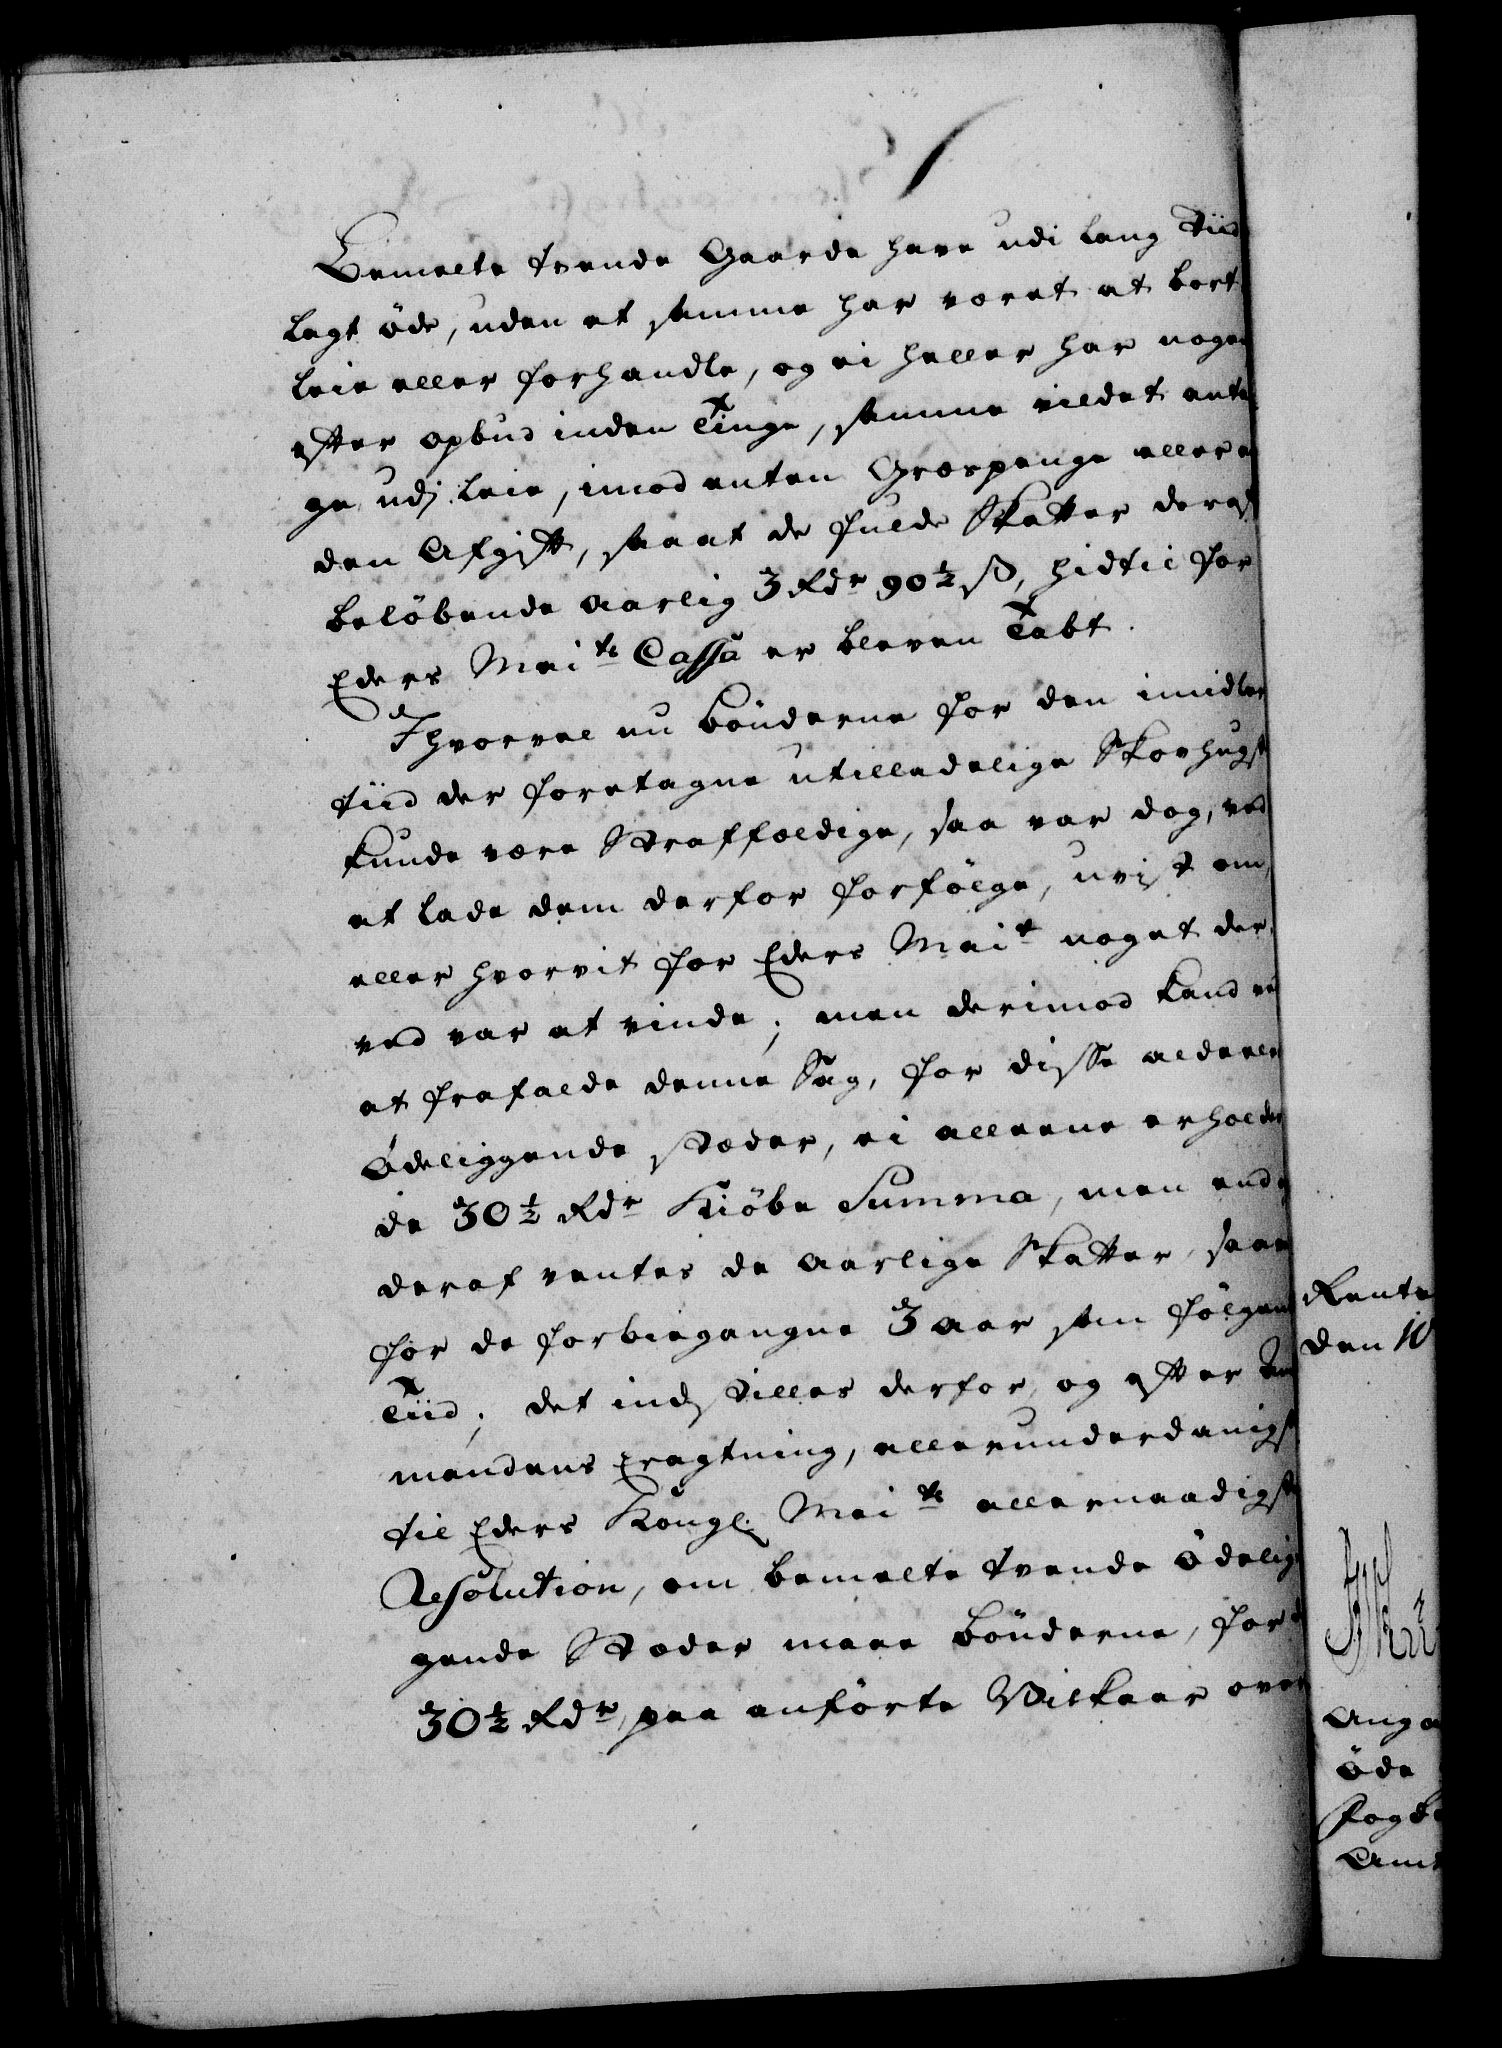 Bemelte tvende Gaarde have udi lang Tiid
lagt öde, uden at samme har været at bort
leie eller forhandle, og ei heller har nogen
efter opbud inden Tinge, samme vildet anta
ge udj leie, imod enten Græspenge eller an
den Afgift, saa at de fulde Skatter deraf
belöbende aarlig 3 Rdr 90½ s, hidtil for
Eders Maits Cassa er bleven Tabt.
Ihvorvel nu bönderne for den imidler
tiid der foretagne utilladelige Skovhugst
kunde være Straffældige, saa var dog, ved
at lade dem derfor forfölge, uvist om,
eller hvorvit for Eders Mait noget der
ved var at vinde; men derimod kand ved
at frafalde denne Sag, for disse aldeeles
ödeliggende stæder, ei alleene erholdes
de 30½ Rdr Kiöbe Summa, men endog
deraf ventes de aarlige Skatter, saavel
for de forbiegangne 3 aar som fölgende
Tiid; det indstilles derfor, og efter Amt
mandens Eragtning, allerunderdanigst
til Eders Kongl. Maits allernaadigste
Resolution, om bemelte tvende ödelig
gende Stæder maae bönderne, for de
30½ Rdr, paa anförte Vilkaar over
Rente
den 10
Anga
öde
Fogde
Amt